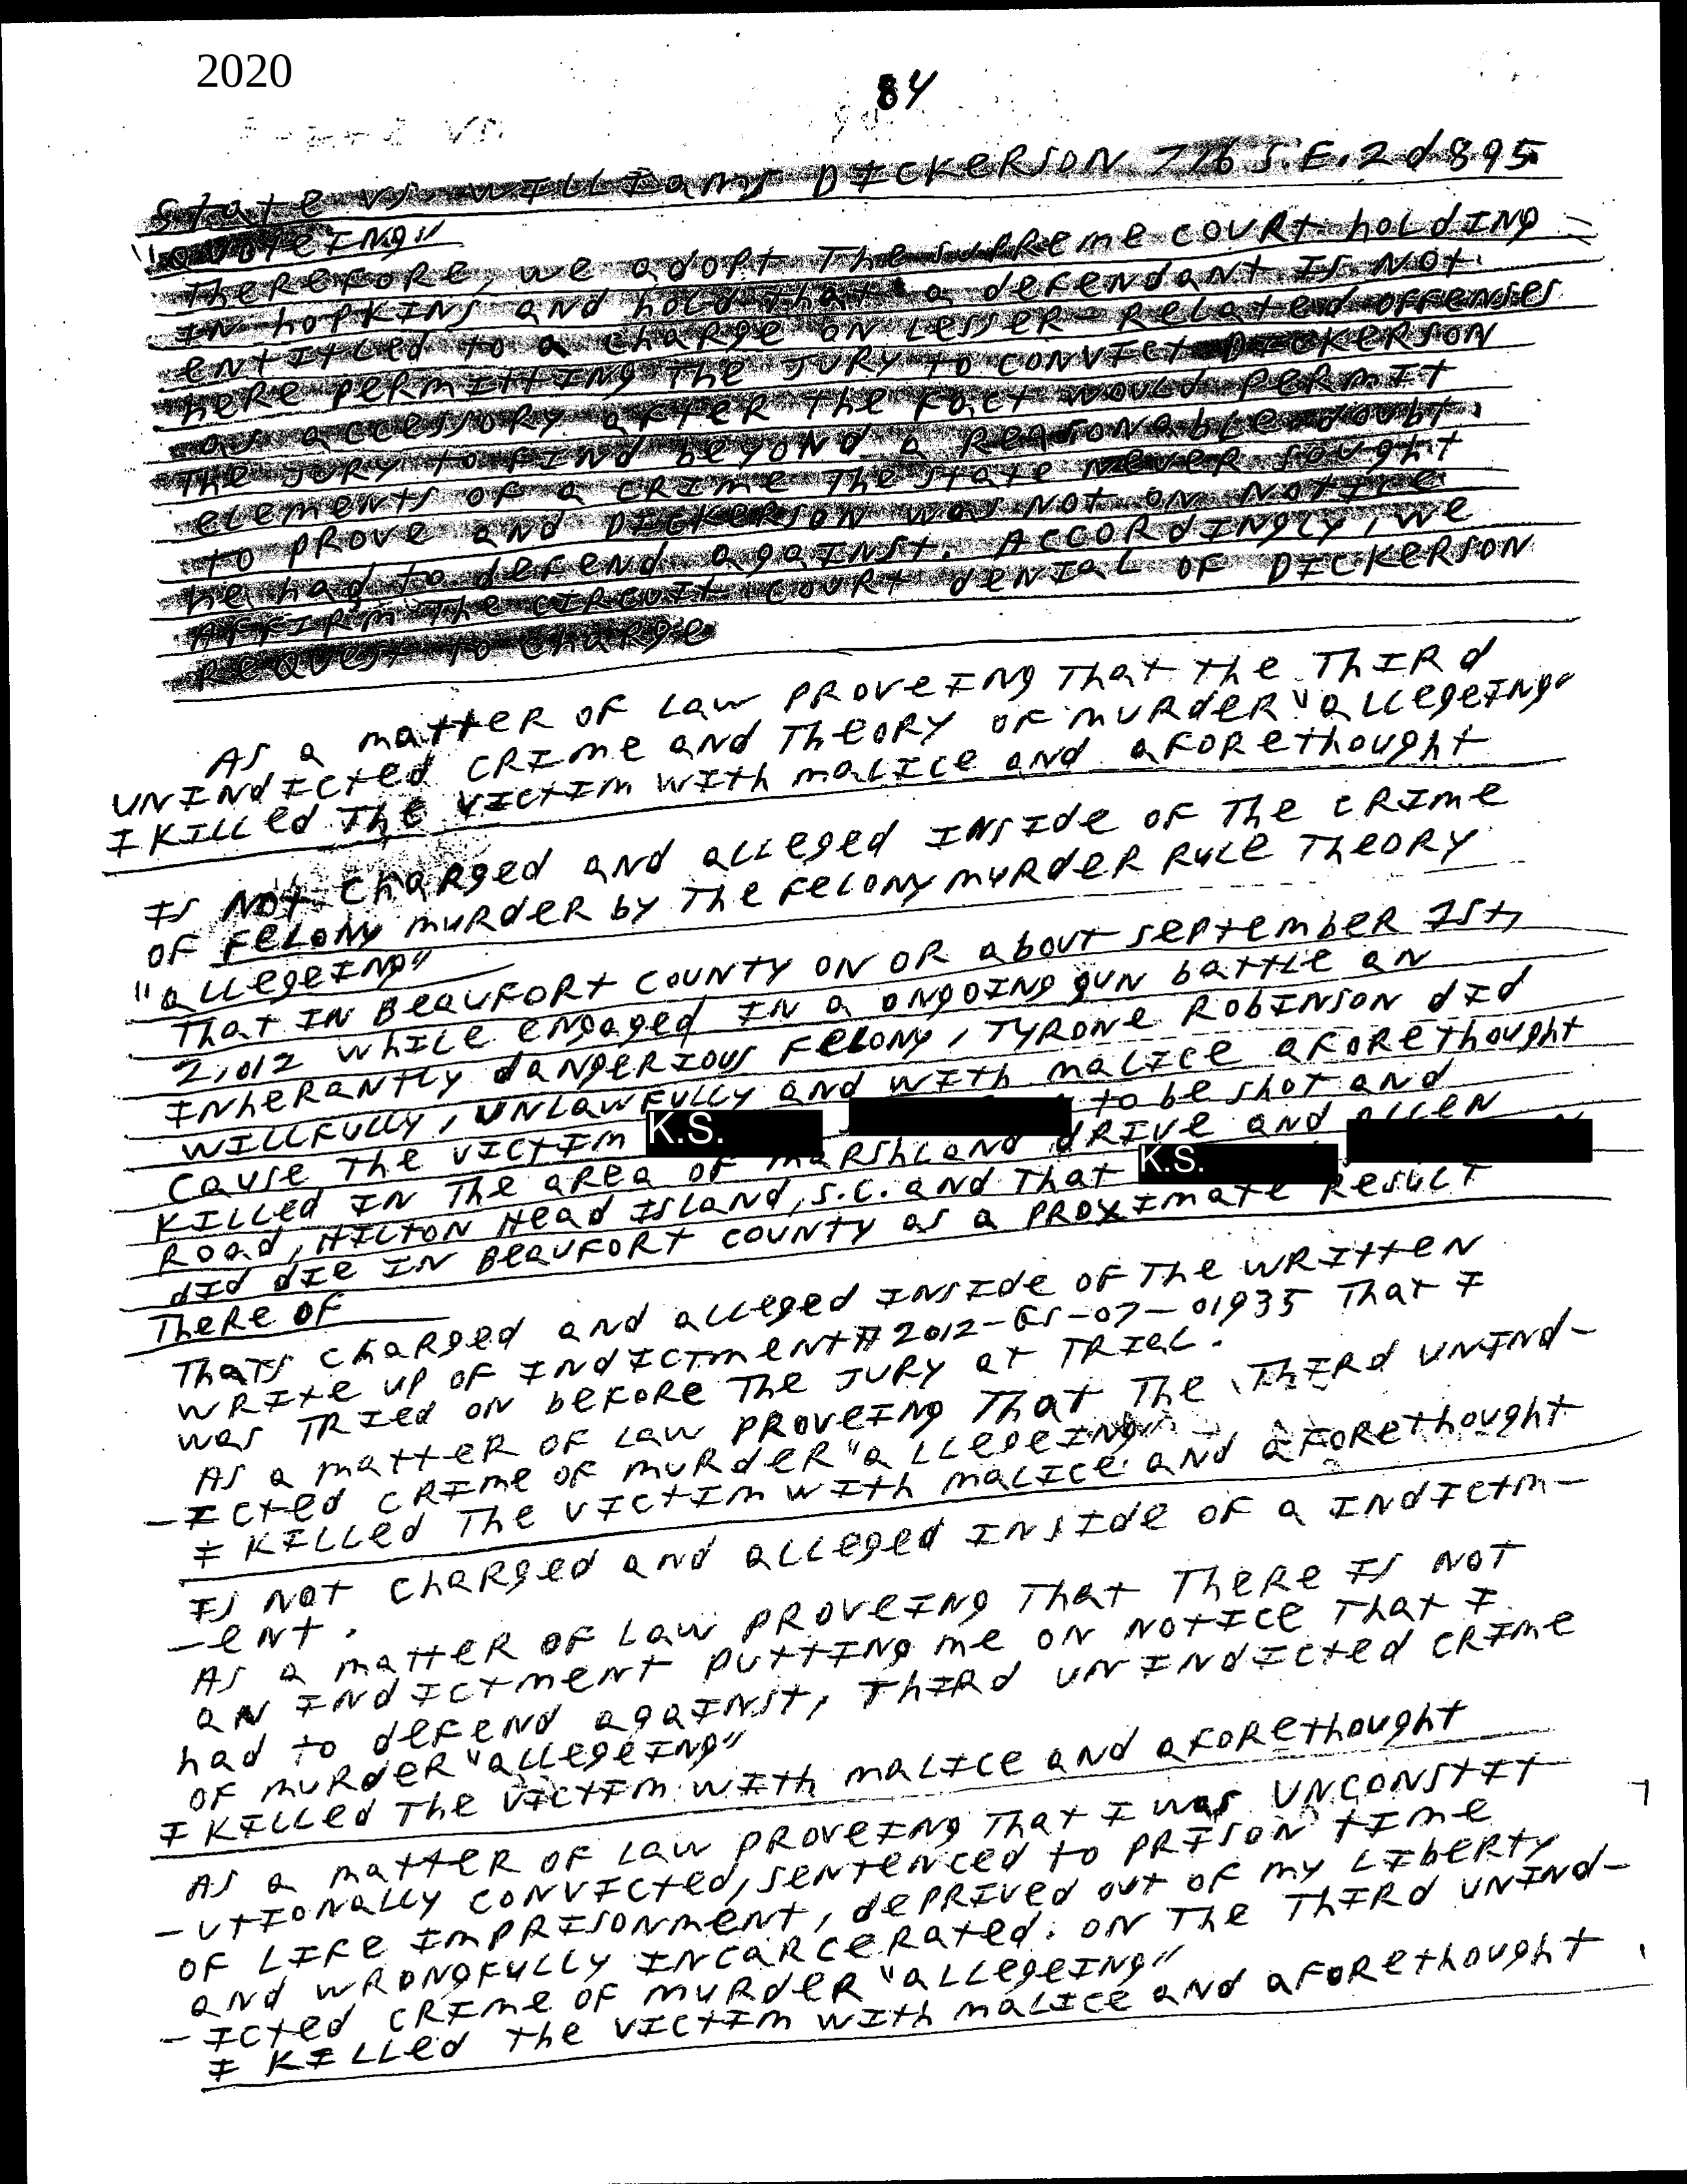 2020
84
State vs. WILLIams DICKERSON 716 S.E.2d 895
"QUOTEING"
THEREFORE, we adopt The SUPREME COURT hOLDING
IN hOPKINS AND hOLD that a defendant IS NOT
entItLed to a chaRge ON LesseR-ReLated OFFenses
heRe PeRmIttIng The JURY to CONVIct DICKeRSON
as accessoRy afteR The Fact would PeRmIt
The JURY to FInd beyond a Reasonable doubt
eLements OF a CRIme The State NeVeR Sought
to PROVe and DICKeRSON was NOT ON NOTICe
he had to defend agaInst. ACCORdINgLy, we
AFFIRM The CIRCUIT COURT denIaL OF DICKeRSON
ReQuest to ChaRge
As a matteR OF Law PROVeINg That the ThIRd
UNINdIcted CRIme and TheORY OF MURdeR "aLLegeINg"
I KILLed The VIctIm wIth maLIce and aFORethought
Is NOT ChaRged and aLLeged INSIde OF The CRIme
OF FeLONy muRdeR by The FeLONymuRdeR RuLe TheORY
"aLLegeINg"
That IN BeauFORt COUNTY ON OR about SepTembeR 1st,
2,012 whILe engaged IN a ONgOINg gun battLe an
INheRANTLy daNgeRIOUS FeLONy, TYRONe RobINSON dId
WILLFULLY, UNLawFULLy and wIth maLIce aFORethought
Cause The VIctIm K.S. to be shot and
KILLed IN The aRea OF maRShLand dRIVe and aLLeN
ROad, HILTON Head ISLand, S.C. and That K.S.
dId dIe IN BeauFORt COUNTY as a PROXImate ResuLt
TheRe OF
Thats ChaRged and aLLeged INSIde OF The WRItten
WRIte up OF INdIctment# 2012-GS-07-01935 That I
was TRIed ON beFORe The JURY at TRIaL.
As a matteR OF Law PROVeINg That The ThIRd UNINd-
-Icted CRIme OF muRdeR "aLLegeINg"
I KILLed The VIctIm wIth maLIce and aFORethought
Is NOT ChaRged and aLLeged INSIde OF a INdIctm-
-ent.
As a matteR OF Law PROVeINg That TheRe IS NOT
an INdIctment puttINg me ON NOTICe That I
had to deFend agaINst, ThIRd UNINdIcted CRIme
OF muRdeR "aLLegeINg"
I KILLed The VIctIm wIth maLIce and aFORethought
As a matteR OF Law PROVeINg That I was UNCONSTIt
-utIONaLLy CONVIcted, SenTenced to PRISON tIme
OF LIFe ImPRISONment, dePRIVed out OF my LIbeRty
and WRONgFULLy INCaRCeRated. ON The ThIRd UNINd-
-Icted CRIme OF muRdeR "aLLegeINg"
I KILLed The VIctIm wIth maLIce and aFORethought